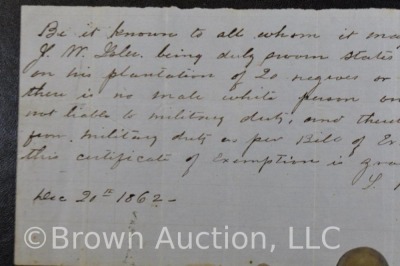 Be it known to all whom it may
J. W. Isler. being duly sworn states
on his plantation of 20 negroes or
there is no male white person on
not liable to military duty, and there
from military duty as per Bill of Ex
this certificate of Exemption is gra
Dec 20th 1862 -
© Brown Auction, LLC